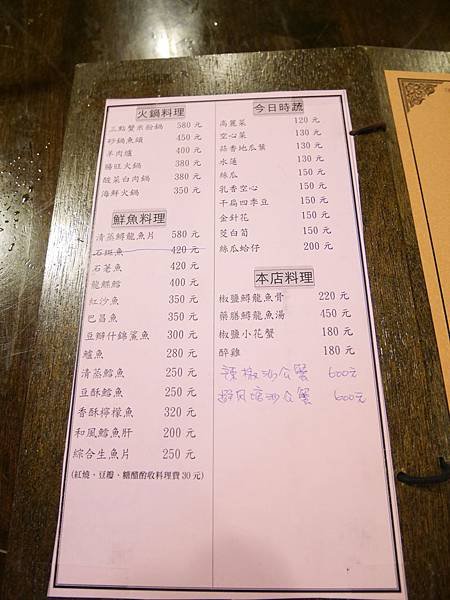 火鍋料理
三點蟹米粉鍋 580 元
砂鍋魚頭 450 元
羊肉爐 400 元
腸旺火鍋 380 元
酸菜白肉鍋 380 元
海鮮火鍋 350 元
鮮魚料理
清蒸鱘龍魚片 580 元
石斑魚 420 元
石荖魚 420 元
龍鰈鱈 400 元
紅沙魚 350 元
巴昌魚 350 元
豆瓣什錦鯊魚 300 元
鱸魚 280 元
清蒸鱈魚 250 元
豆酥鱈魚 250 元
香酥檸檬魚 320 元
和風鱈魚肝 200 元
綜合生魚片 250 元
(紅燒、豆瓣、糖醋酌收料理費 30 元)
今日時蔬
高麗菜 120 元
空心菜 130 元
蒜香地瓜葉 130 元
水蓮 130 元
絲瓜 150 元
乳香空心 150 元
干扁四季豆 150 元
金針花 150 元
茭白筍 150 元
絲瓜蛤仔 200 元
本店料理
椒鹽鱘龍魚骨 220 元
藥膳鱘龍魚湯 450 元
椒鹽小花蟹 180 元
醉雞 180 元
辣椒沙公蟹 600元
避风塘沙公蟹 600元